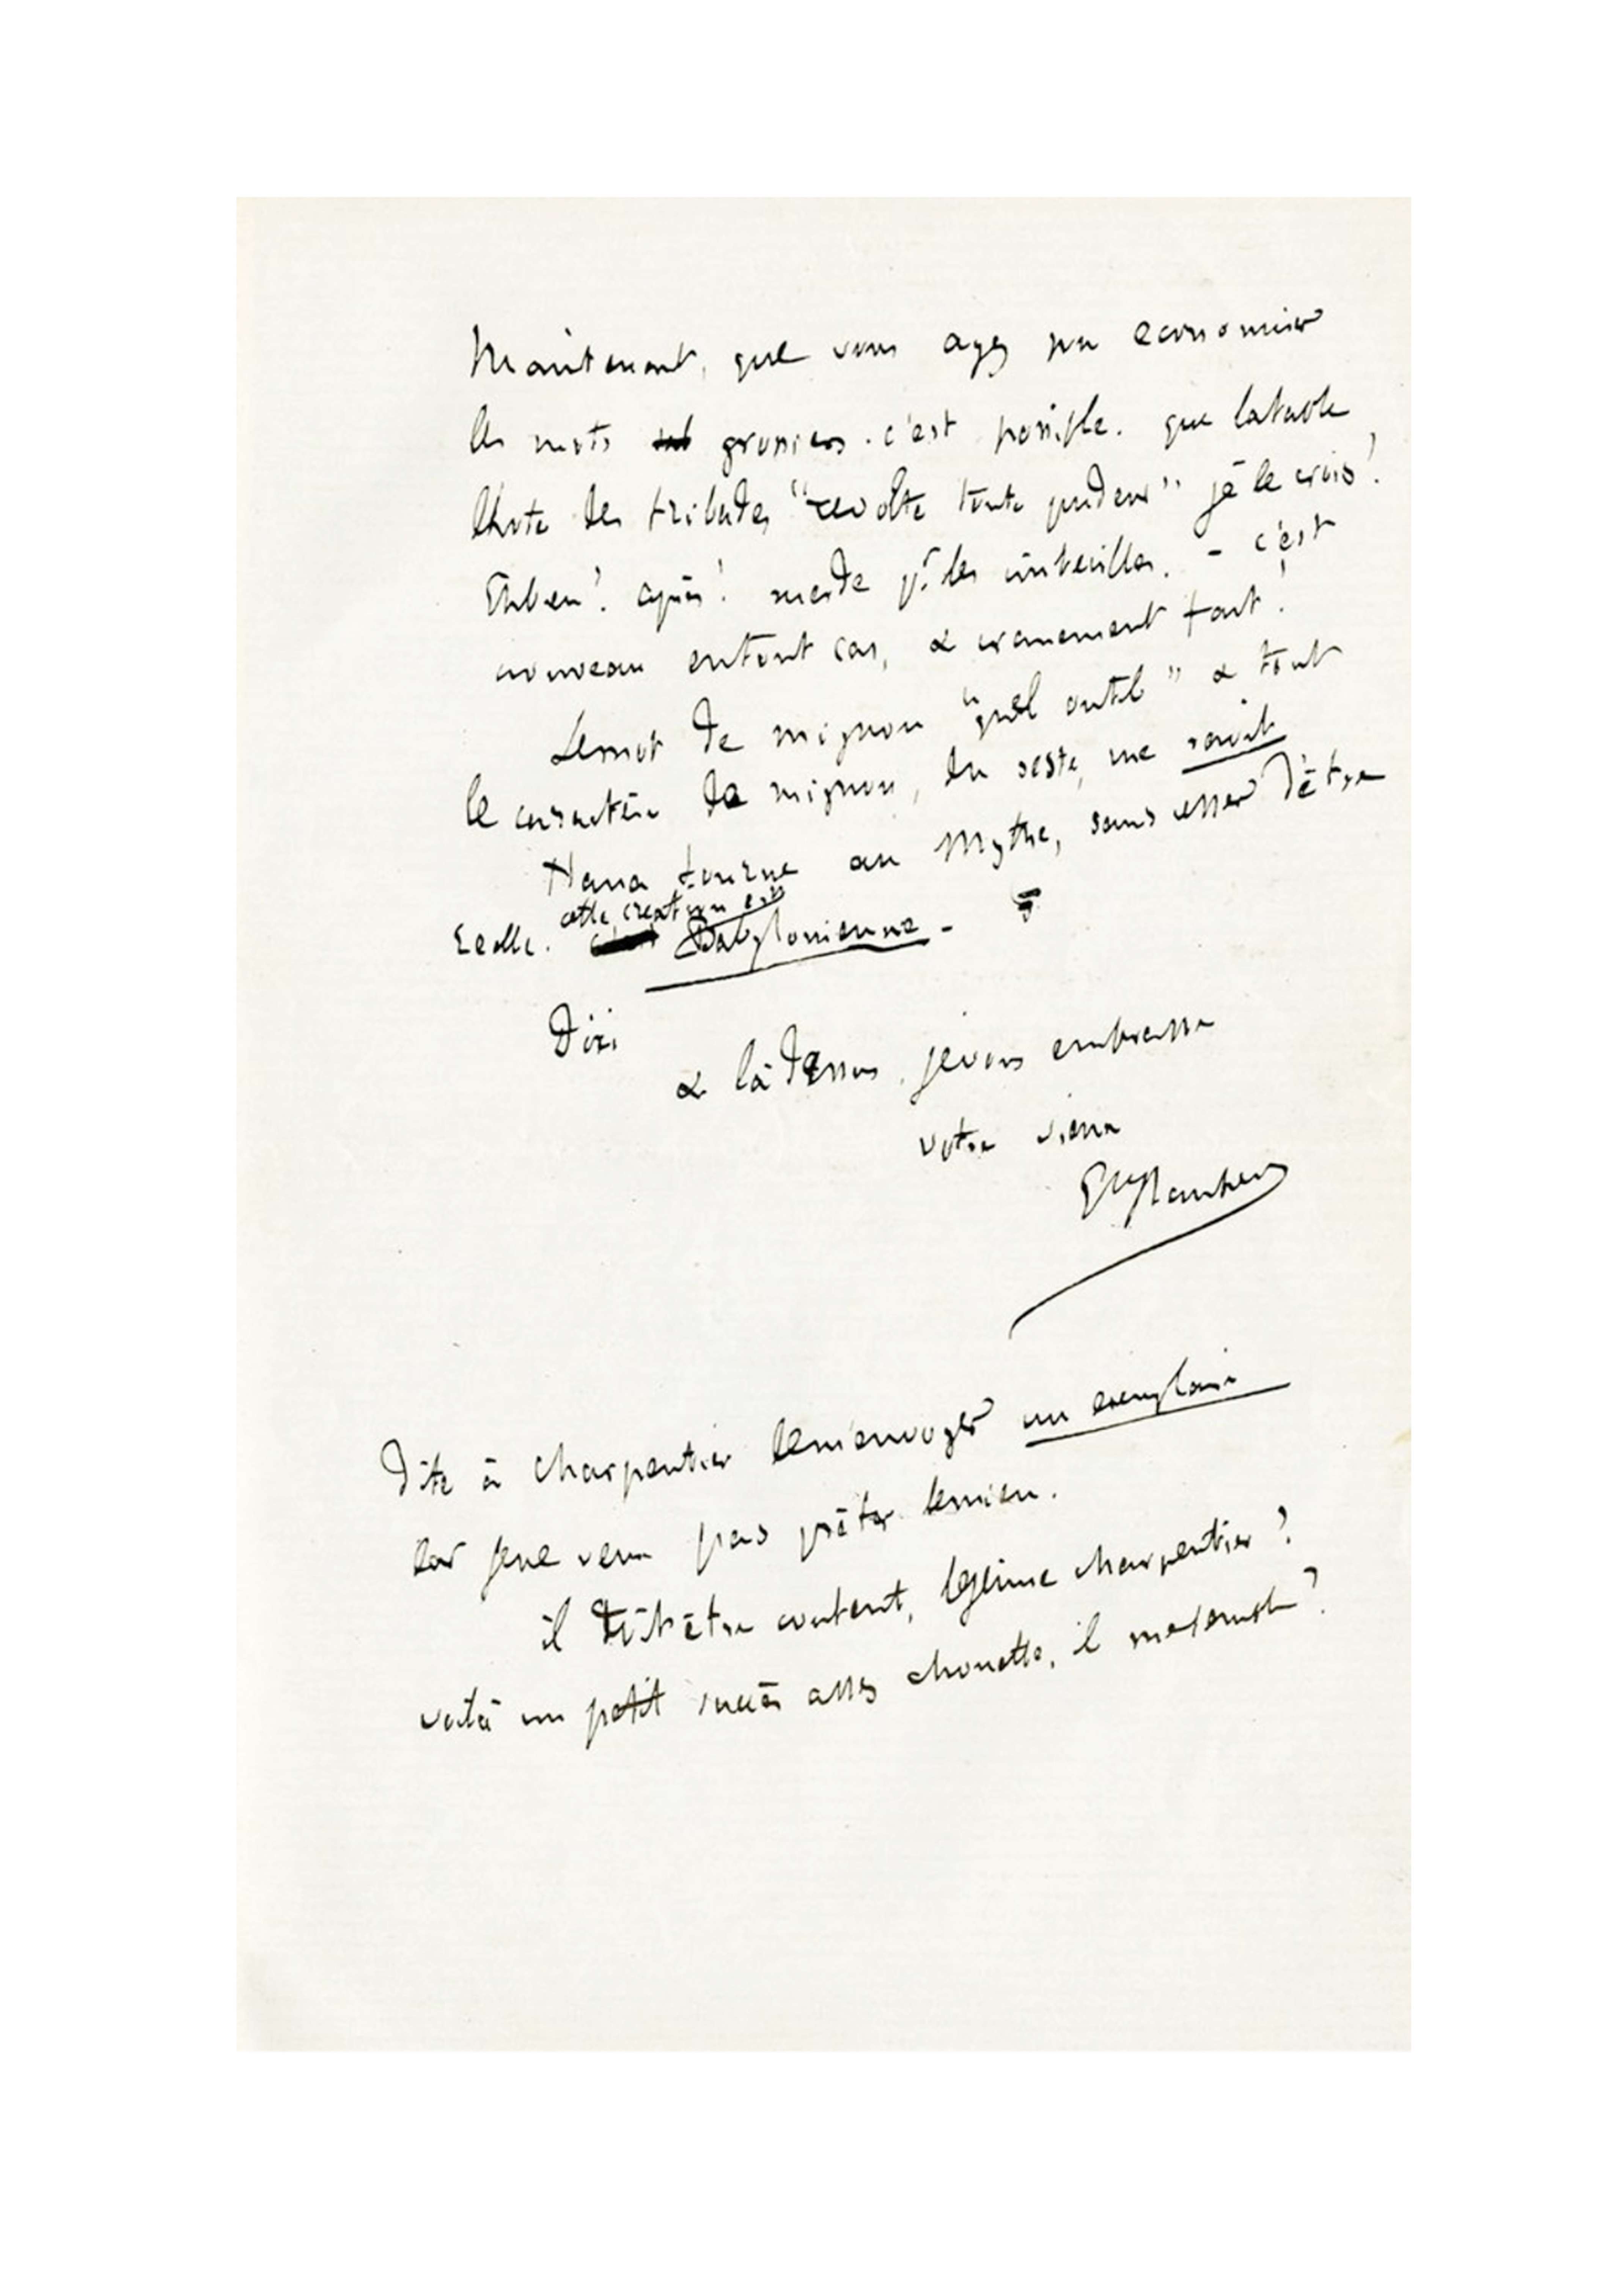 Maintenant, que vous ayez pu economiser
les mots grossiers. c'est possible. que la table
d'hote des tribades "revolte toute pudeur" je le crois!
Eh bien! après! merde pr. les imbeciles. - c'est
nouveau en tout cas, & cranement fait!
Le mot de mignon "quel outil" & tout
le caractère de mignon, du reste, me ravit
Nana tourne au Mythe, sans cesser d'être
cette creation est
reelle. Babylonienne -
Dixi
& là dessus, je vous embrasse
votre vieux
Gve Flaubert
Dite à Charpentier de m'envoyer un exemplaire
car je ne veux pas prêter le mien.
il doit être content, le jeune Charpentier?
voilà un petit succès assez chouette, il me semble?